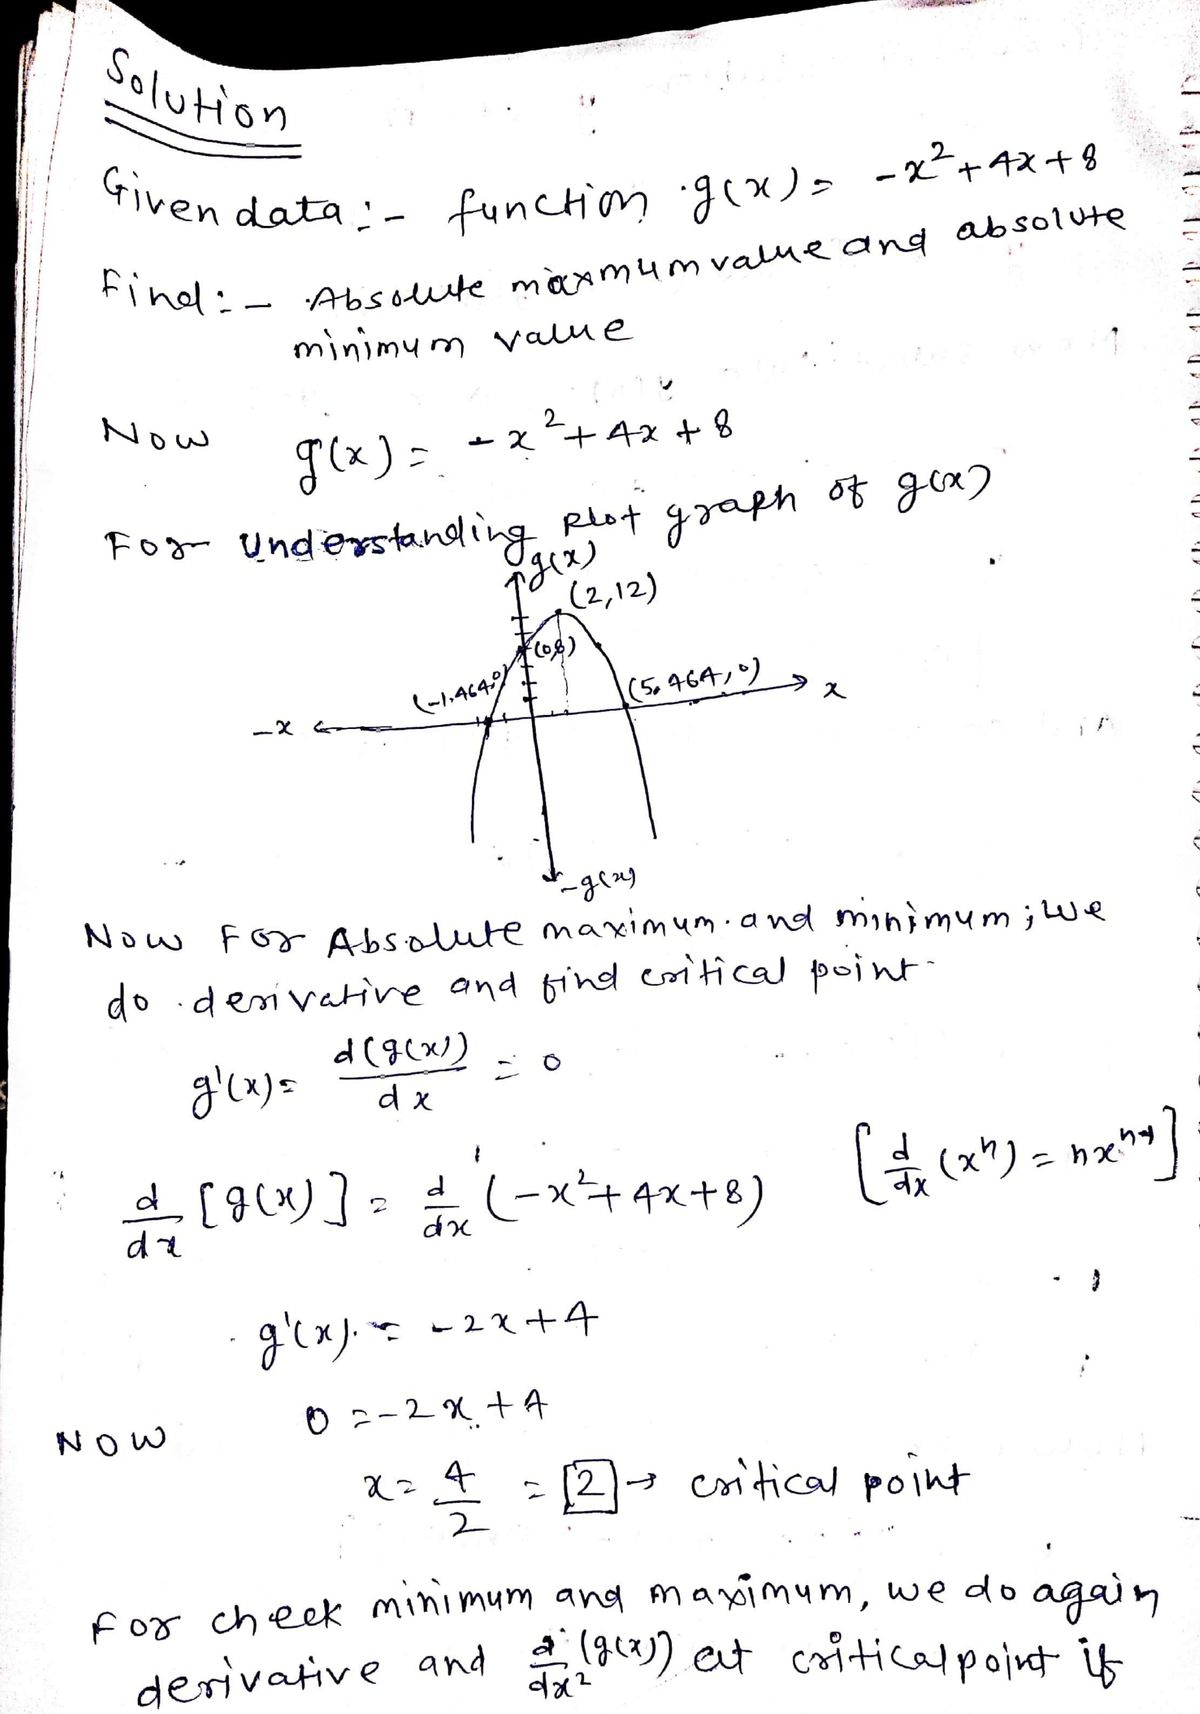 Solution
Given data :- function g(x) = -x² + 4x + 8
Find :- Absolute maxmum value and absolute
minimum value
Now g(x) = -x² + 4x + 8
For Understanding Plot graph of g(x)
g(x)
(2,12)
(0,8)
(-1.464,0)
(5.464,0)
x
-x
-g(x)
Now For Absolute maximum and minimum ; we
do derivative and find critical point
g'(x) = d(g(x))/dx = 0
d/dx [g(x)] = d/dx (-x² + 4x + 8) [d/dx (xⁿ) = nxⁿ⁻¹]
g'(x) = -2x + 4
Now 0 = -2x + 4
x = 4/2 = 2 → critical point
For check minimum and maximum, we do again
derivative and d/dx² (g(x)) at critical point if